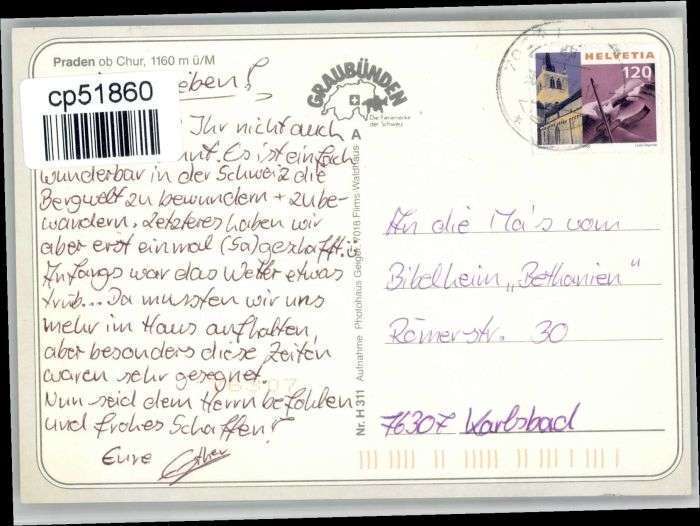 Praden ob Chur, 1160 m ü/M
cp51860
GRAUBÜNDEN
Die Ferienecke
der Schweiz
HELVETIA
120
ieben!
Ihr nicht auch
nnt. Es ist einfach
wunderbar in der Schweiz die
Bergwelt zu bewundern + zu be-
wandern. Letzteres haben wir
aber erst einmal (Sa) geschafft.
Anfangs war das Wetter etwas
trüb... Da mussten wir uns
mehr im Haus aufhalten,
aber besonders diese Zeiten
waren sehr gesegnet.
Nun seid dem Herrn befohlen
und frohes Schaffen!
Eure Esther
Nr. H 311 Aufnahme Photohaus Geiger 7018 Flims Waldhaus A
An die Ma's vom
Bibelheim „Bethanien"
Römerstr. 30
76307 Karlsbad